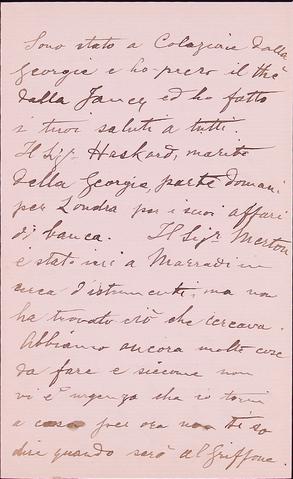 Sono stato a Colazione dalla
Georgia e ho preso il thè
dalla Jancey ed ho fatto
i tuoi saluti a tutti.
Il Sigr Haskard, marito
della Georgia, parte domani
per Londra per i suoi affari
di banca. Il Sigr Merton
è stato ieri a Marradi in
cerca d'istrumenti, ma non
ha trovato ciò che cercava.
Abbiamo ancora molte cose
da fare e siccome non
vi è urgenza che io torni
a casa per ora non ti so
dire quando sarò al Griffone.